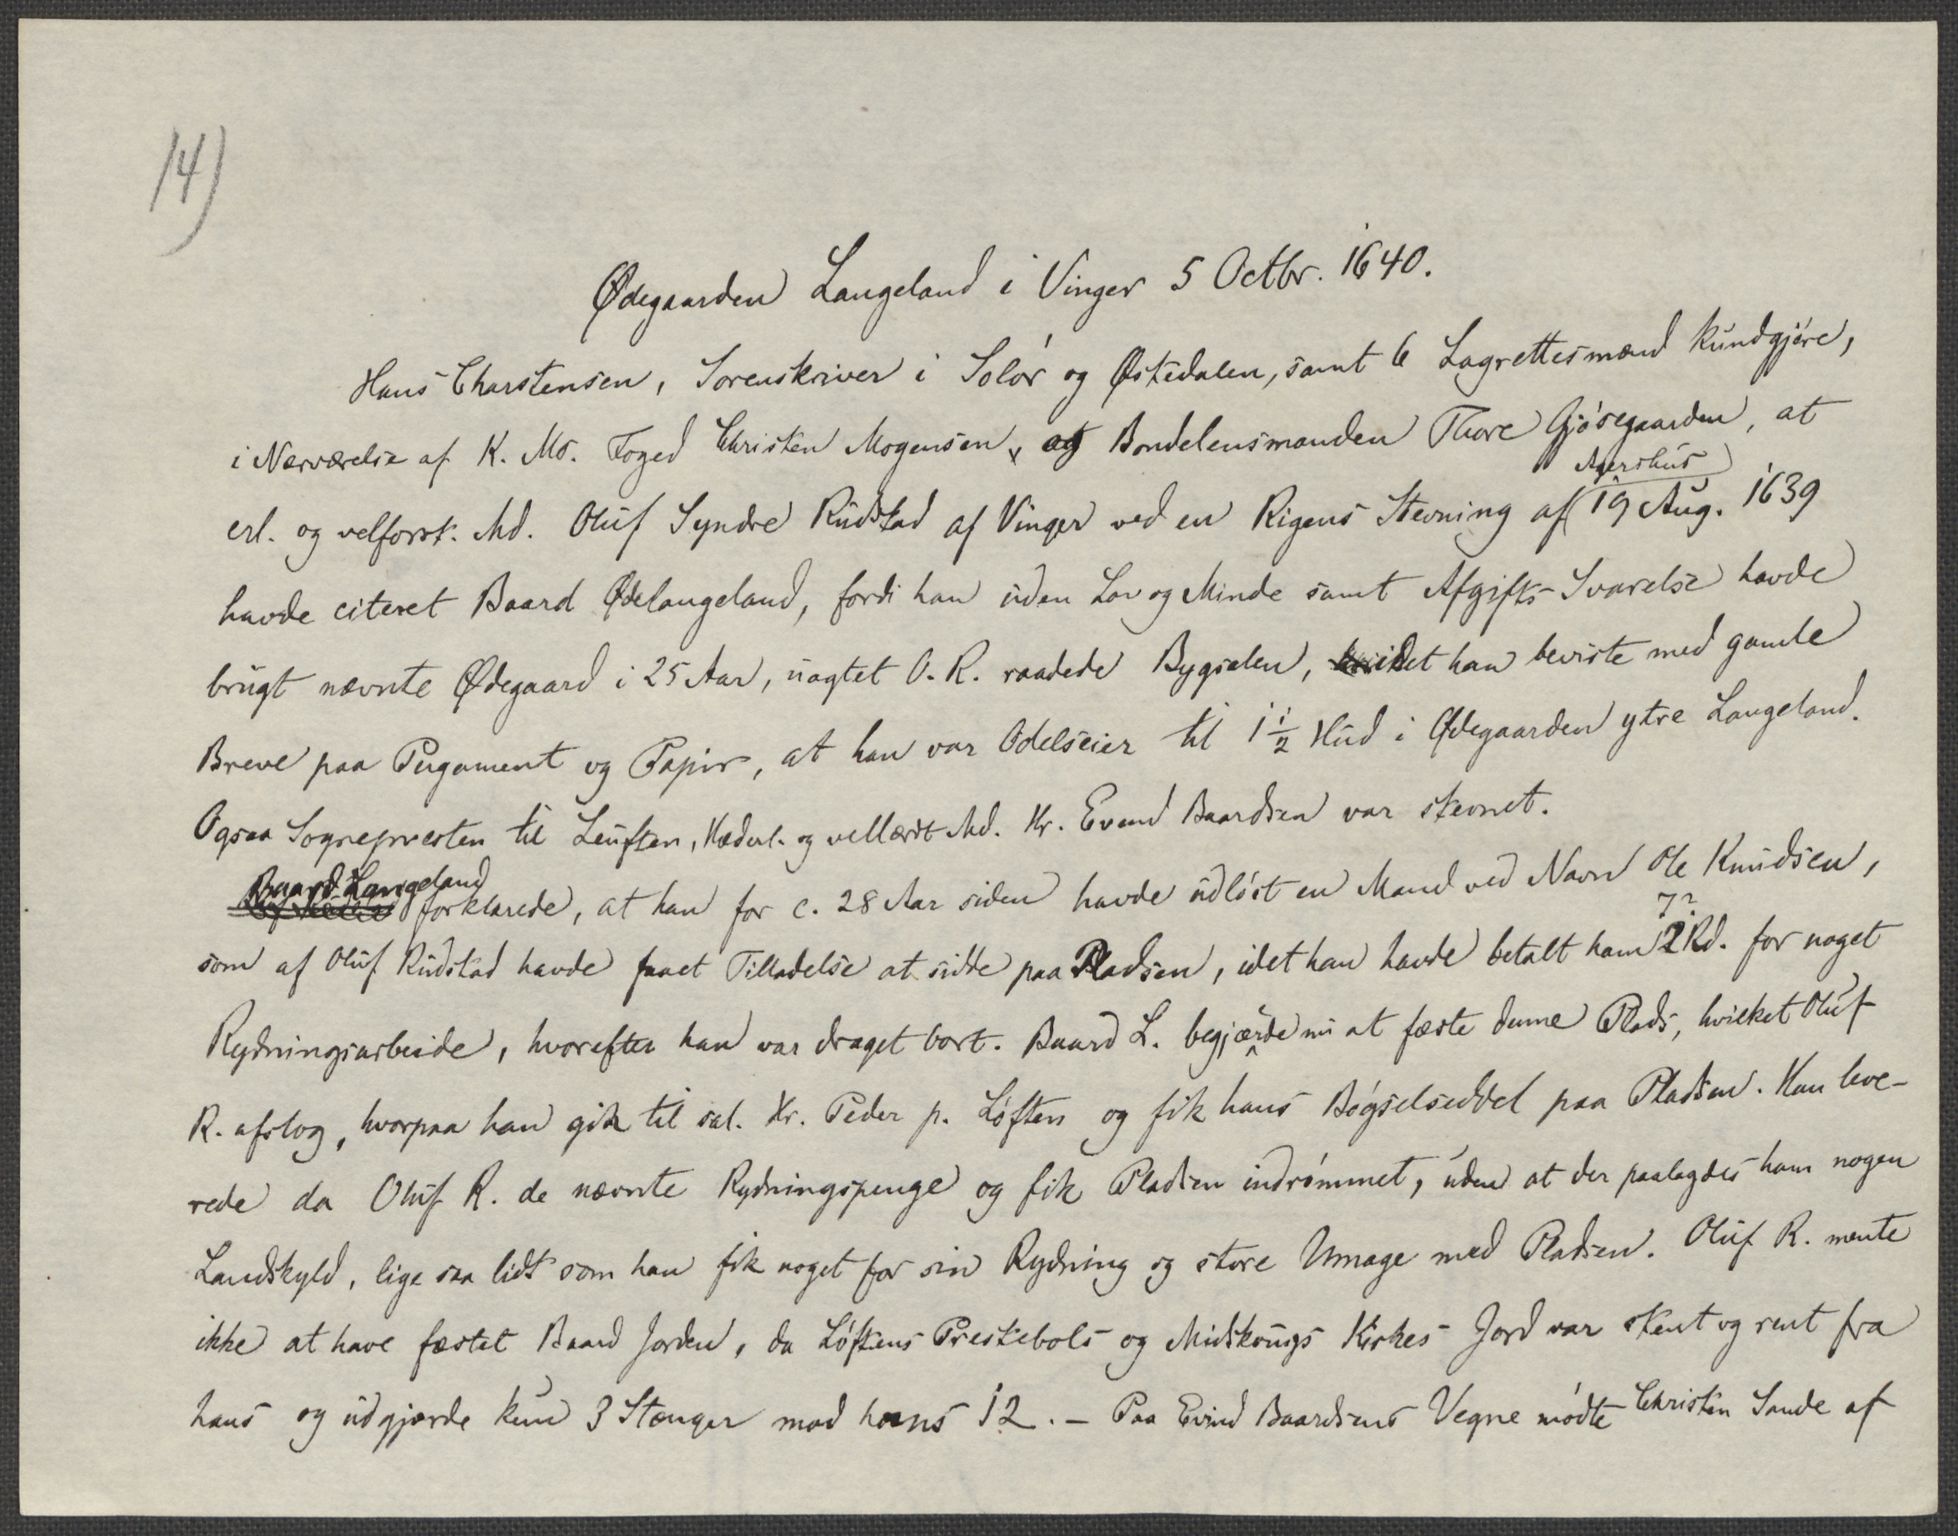 14)
Ødegaarden Langeland i Vinger 5 Octbr. 1640.
Hans Charstensen, Sorenskriver i Solør og Østedalen, samt 6 Lagrettesmænd kundgjøre,
i Nærværelse af K. Ms. Foged Christen Mogensen, og Bondelensmanden Thore Gjøsegaarden, at
Agershus
erl. og velforst. Md. Oluf Syndre Rudstad af Vinger ved en Rigens Stevning af 19 Aug. 1639
havde citeret Baard Ødelangeland, fordi han uden Lov og Minde samt Afgifts-Svarelse havde
brugt nævnte Ødegaard i 25 Aar, uagtet O. R. raadede Bygselen, idet han beviste med gamle
Breve paa Pergament og Papir, at han var Odelseier til 1 1/2 Hud i Ødegaarden ytre Langeland.
Ogsaa Sognepresten til Leuften, Hæderl. og vellærdt Md. Hr. Evend Baardsen var stevnet.
Baard Langeland
forklarede, at han for c. 28 Aar siden havde udløst en Mand ved Navn Ole Knudsen,
som af Oluf Rudstad havde faaet Tilladelse at sidde paa Pladsen, idet han havde betalt ham 2 Rd. for noget
Rydningsarbeide, hvorefter han var draget bort. Baard L. begjærde nu at fæste denne Plads, hvilket Oluf
R. afslog, hvorpaa han gik til sal. Hr. Peder p. Løften og fik hans Bøgselseddel paa Pladsen. Han leve-
rede da Oluf R. de nævnte Rydningspenge og fik Pladsen indrømmet, uden at der paalagdes ham nogen
Landskyld, lige saa lidt som han fik noget for sin Rydning og store Umage med Pladsen. Oluf R. mente
ikke at have fæstet Baard Jorden, da Løftens Prestebols og Midskougs Kirkes Jord var stent og rent fra
hans og udgjorde kun 3 Stænger mod hans 12. – Paa Evind Baardsens Vegne mødte Christen Sande af